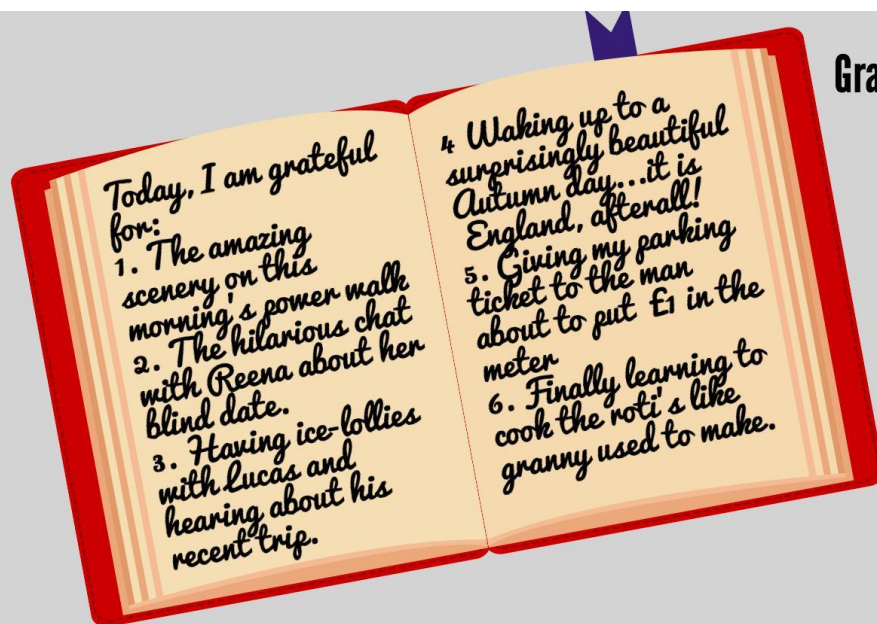 Today, I am grateful
for:
1. The amazing
scenery on this
morning's power walk
2. The hilarious chat
with Reena about her
blind date.
3. Having ice-lollies
with Lucas and
hearing about his
recent trip.
4 Waking up to a
surprisingly beautiful
Autumn day...it is
England, afterall!
5. Giving my parking
ticket to the man
about to put £1 in the
meter
6. Finally learning to
cook the roti's like
granny used to make.
Gra